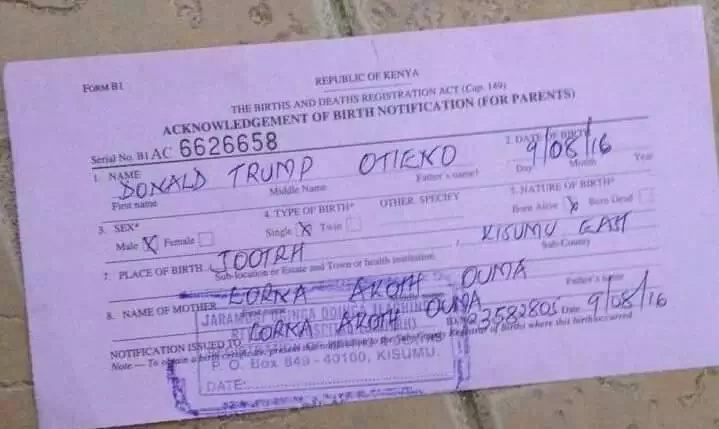 FORM B1
REPUBLIC OF KENYA
THE BIRTHS AND DEATHS REGISTRATION ACT (Cap. 149)
ACKNOWLEDGEMENT OF BIRTH NOTIFICATION (FOR PARENTS)
Serial No. B1 AC 6626658
1. NAME DONALD TRUMP OTIENO
First name Middle Name Father's name
2. DATE OF BIRTH 9/08/16
Day Month Year
3. SEX*
Male X Female
4. TYPE OF BIRTH*
Single X Twin
OTHER, SPECIFY
5. NATURE OF BIRTH*
Born Alive X Born Dead
7. PLACE OF BIRTH JOOTRH KISUMU EAST
Sub-location or Estate and Town or health institution Sub-County
8. NAME OF MOTHER LORNA AKOTH OUMA
Father's name
NOTIFICATION ISSUED TO LORNA AKOTH OUMA ID/No. 23582805 Date 9/08/16
Note — To obtain a birth certificate, present this notification to the Sub-County Register of births where this birth occurred
JARAMOGI OGINGA ODINGA
P. O. Box 849 - 40100, KISUMU.
DATE: